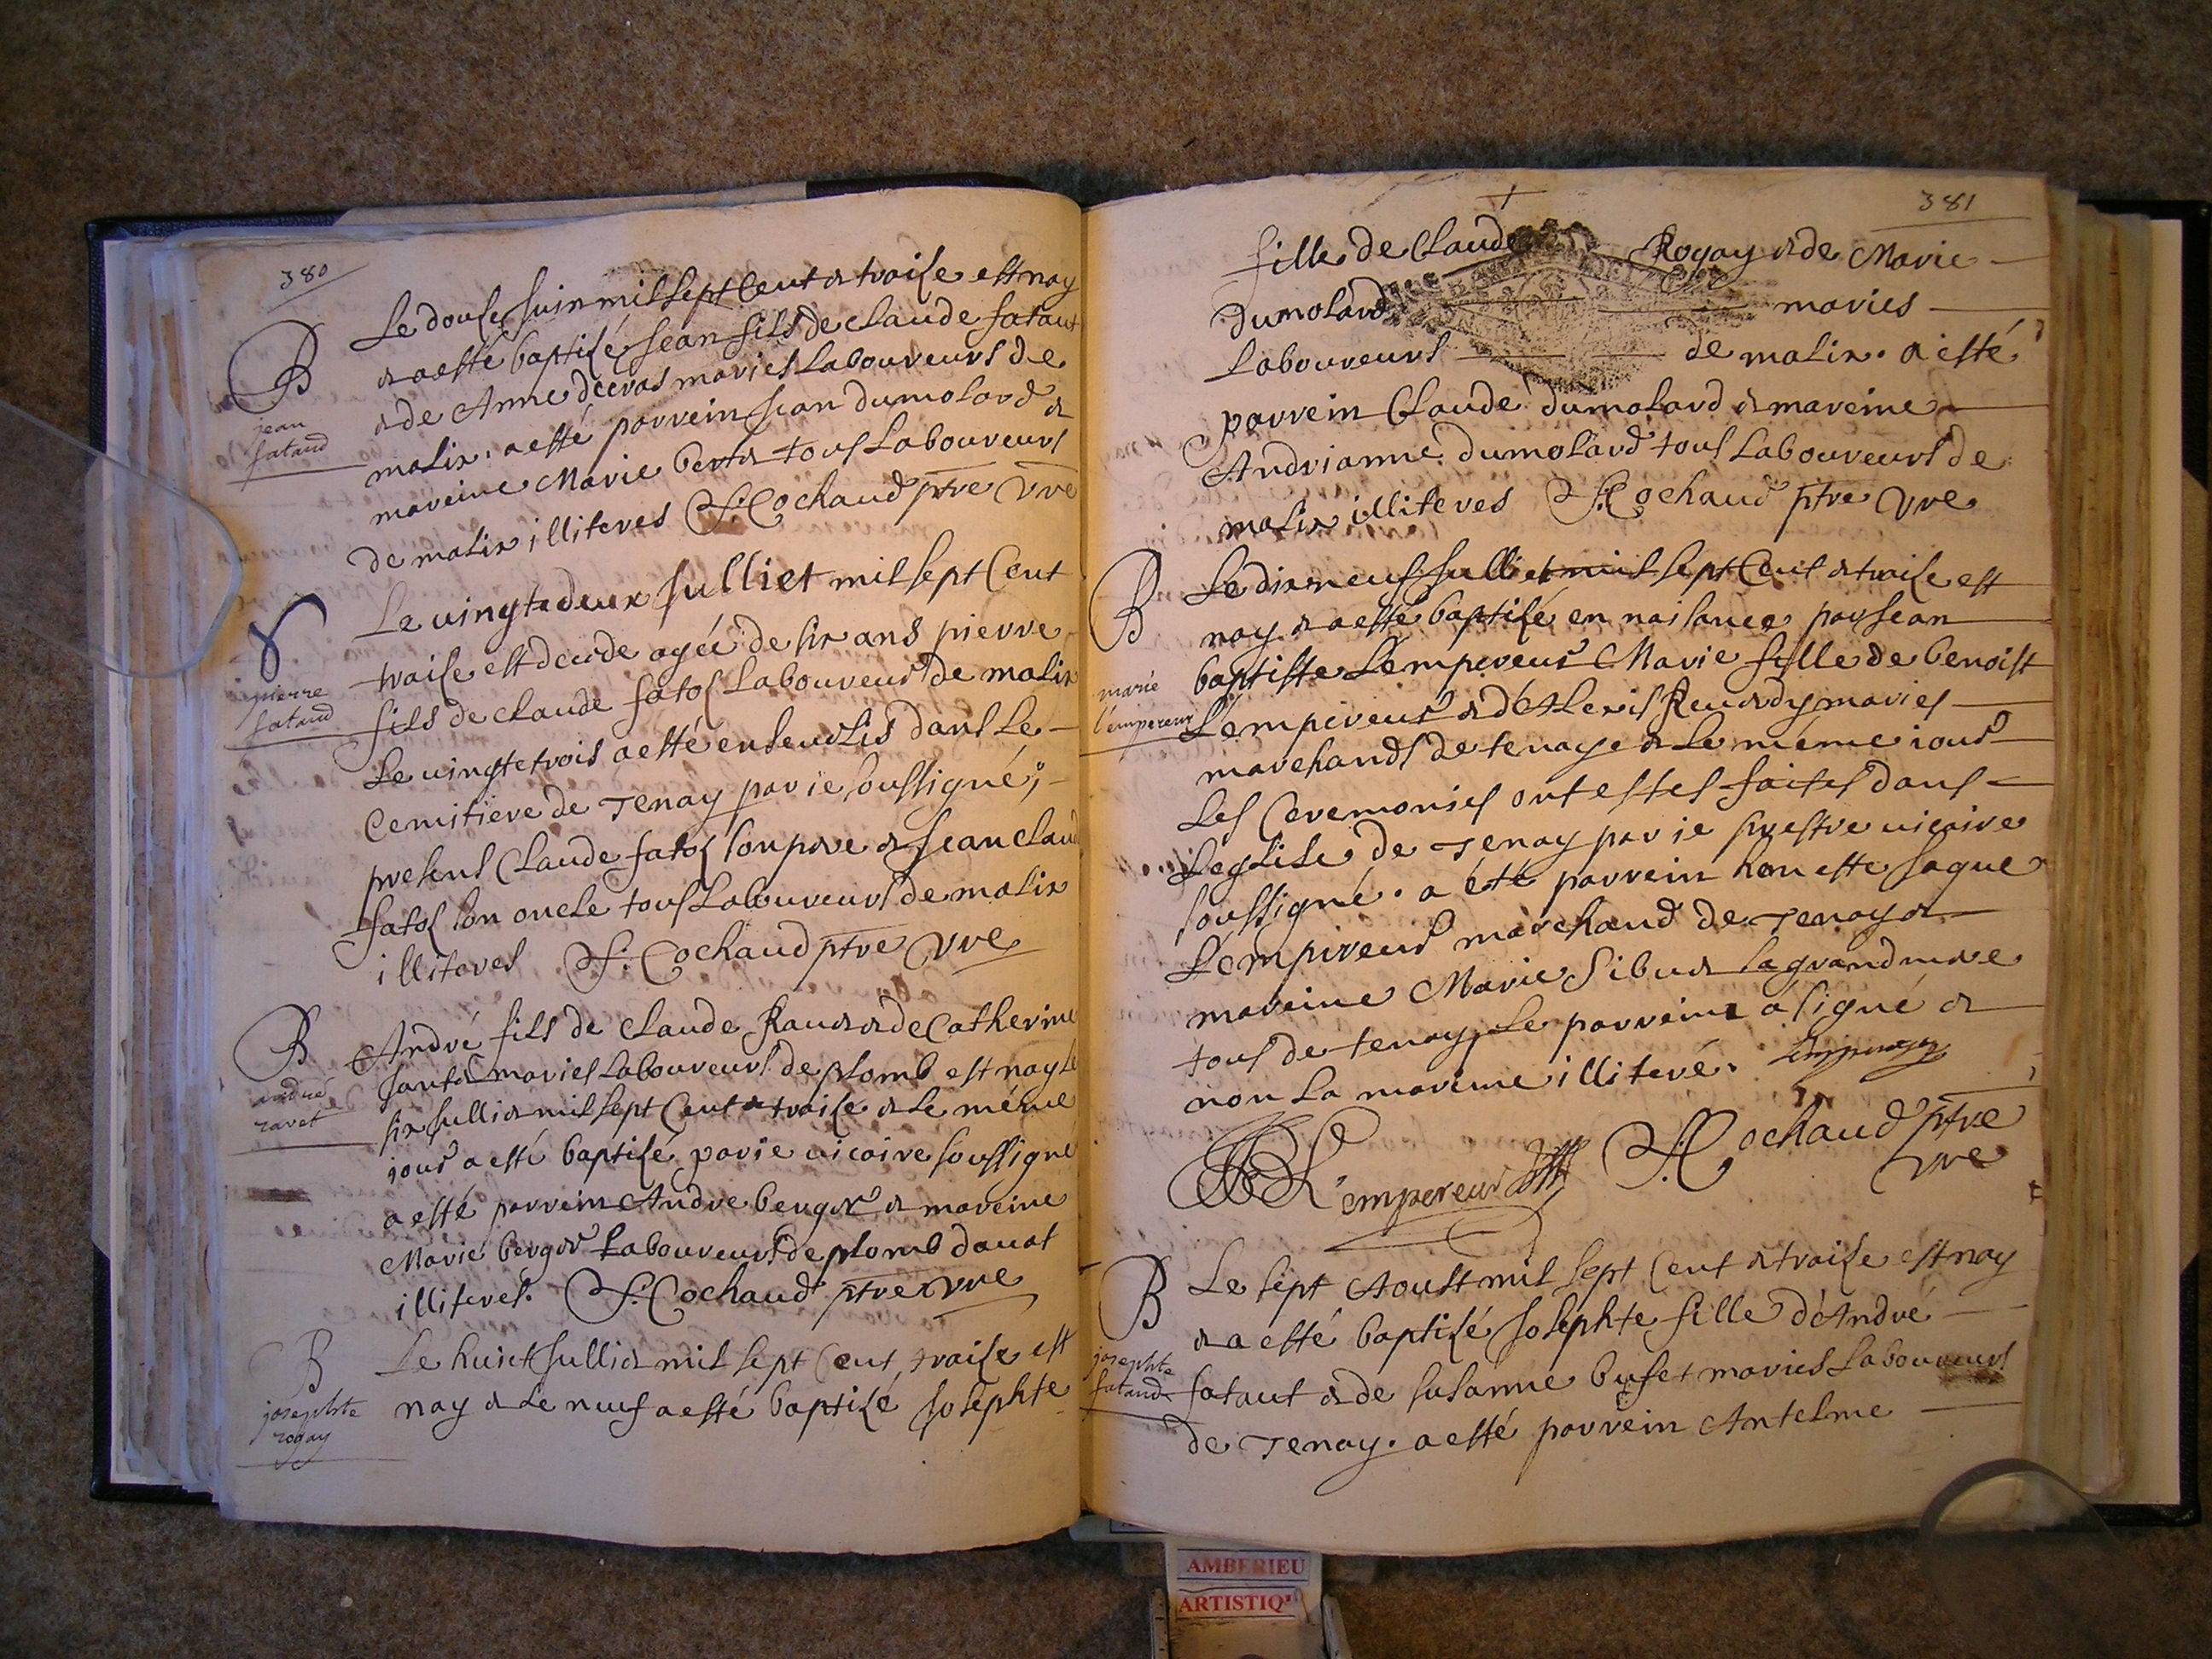 380
B
jean
fataud
Le douse Juin mil sept Cent et traise est nay
et a esté baptisé Jean fils de claude fataut
et de Anne decras mariés Laboureurs de
malix. a esté parrein Jean dumolard et
mareine Marie bertet tous Laboureurs
de malix illiteres J: Cochaud ptre vre
pierre
fataud
Le vingt deux Julliet mil sept Cent
traise est decede agée de six ans pierre
fils de claude fatos Laboureur de malix
Le vingtetrois a esté ensevelis dans Le
Cemitiere de Tenay par ie soussigné,
presens Claude fatos son pere et Jean claud
fatos son oncle tous Laboureurs de malix
illiteres J: Cochaud ptre vre
B
andré
ravet
André fils de claude Ravet et de Catherine
mariés Laboureurs de plomb est nay Le
six Julliet mil sept Cent et traise et Le méme
jour a esté baptisé par ie vicaire soussigné
a esté parrein Andre berger et mareine
Marie berger Laboureurs de plomb
illiteres. J: Cochaud ptre vre
B
josephte
rogay
Le huict Julliet mil sept Cent traise est
nay et Le neuf a esté baptisé Josephte
381
fille de Claude Rogay et de Marie
dumolard maries
Laboureurs de malix. a esté
parrein Claude dumolard et mareine
Andrianne dumolard tous Laboureurs de
malix illiteres J: Cochaud ptre vre
B
marie
l'empereur
Le dixneuf Julliet mil sept Cent et traise est
nay et a esté baptisé en naisance par Jean
baptiste L'empereur Marie fille de benoist
L'empereur et de mariés
marchands de tenay et Le méme iour
Les Ceremonies ont estes faites dans
L'eglise de Tenay par ie prestre vicaire
soussigné. a été parrein honeste Jaque
L'empereur marchand de Tenay et
mareine Marie Sibuet sa grandmere
tous de tenay, Le parrein a signé et
non La mareine illiteré.
L'empereur J: Cochaud ptre
vre
B
josephte
fataud
Le sept Aoust mil sept Cent et traise est nay
et a esté baptisé Josephte fille d'André
fataut et de susanne buset mariés Laboureurs
de Tenay. a esté parrein Antelme
AMBERIEU
ARTISTIQ'